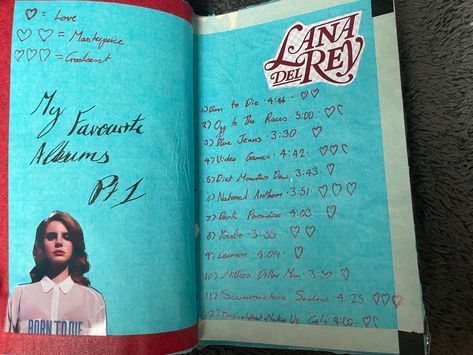 ♡ = Love
♡ ♡ = Masterpiece
♡♡♡ = Goodcent
My
Favourite
Albums
Pt 1
BORN TO DIE
LANA
DEL REY
1) Born to Die · 4:46 · ♡♡
2) Off To The Races · 5:00 · ♡
3) Blue Jeans · 3:30 ♡
4) Video Games · 4:42 ♡♡
5) Diet Mountain Dew 3:43 ♡
6) National Anthem · 3:51 ♡♡♡
7) Dark Paradise 4:03 ♡
8) Radio · 3:35 ♡ ♡
9) Carmen · 4:09 · ♡
10) Million Dollar Man · 3: ♡
11) Summertime Sadness 4:23 ♡♡♡
12) This is What Makes Us Girls 4:00 ♡